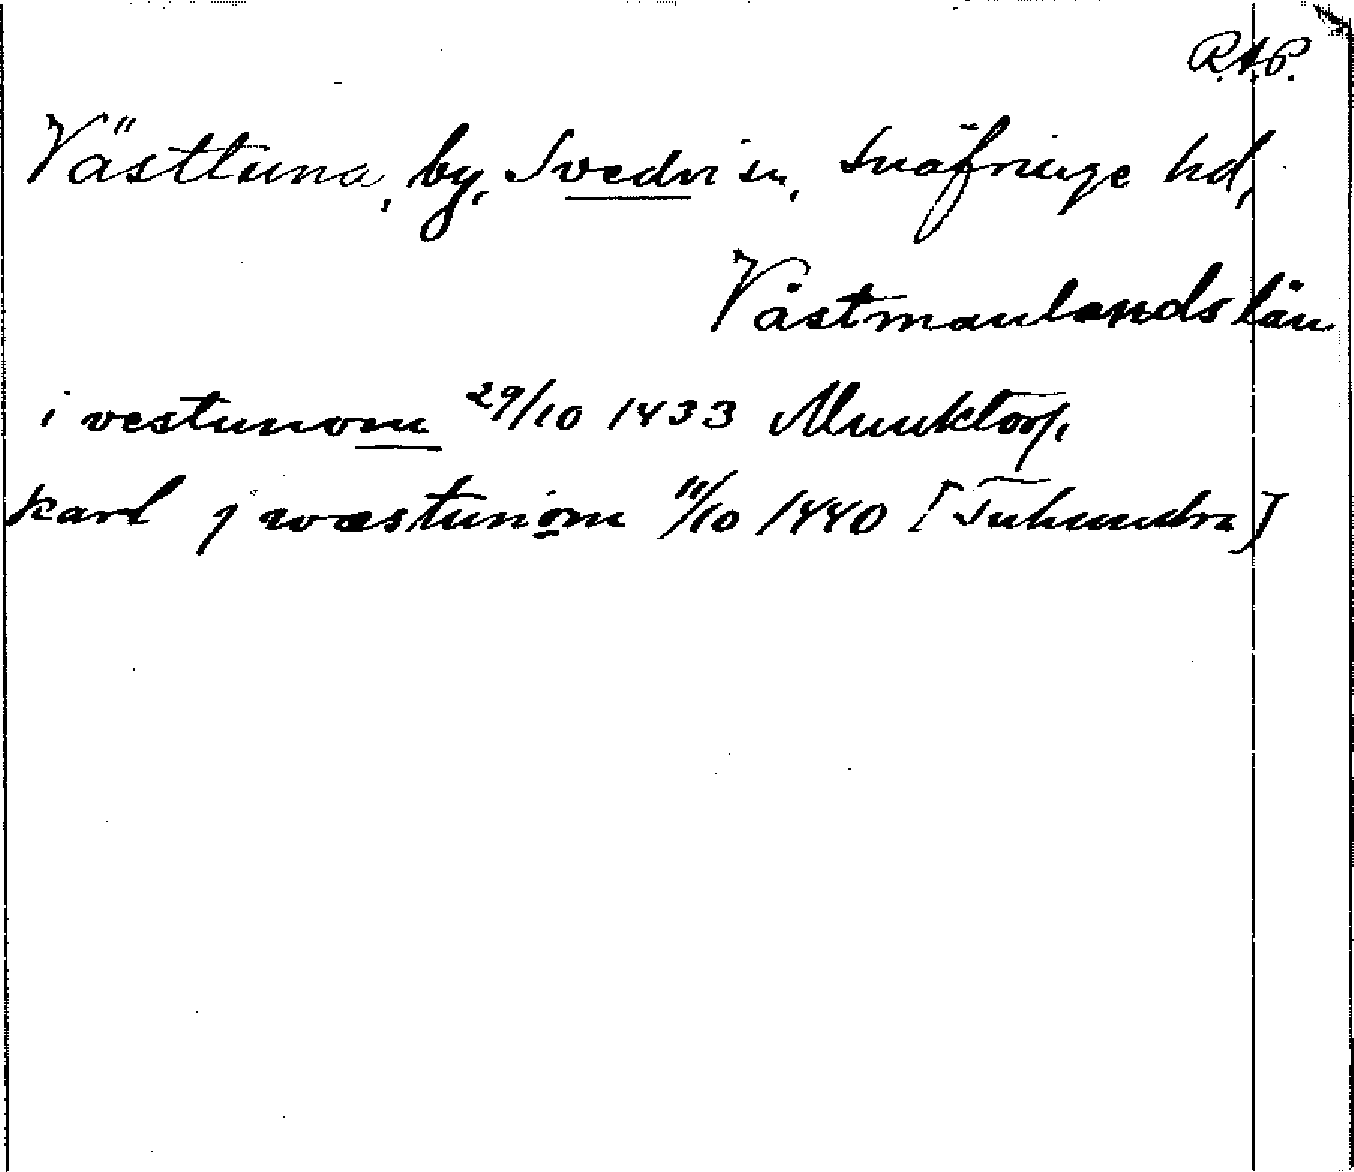 R.A.P.
Västtuna, by, Svedvi sn, Snäfringe hd,
Västmanlands län
i vestunom 29/10 1433 Munktorp.
karl j wæstunom 11/10 1440 [Tuhundra]